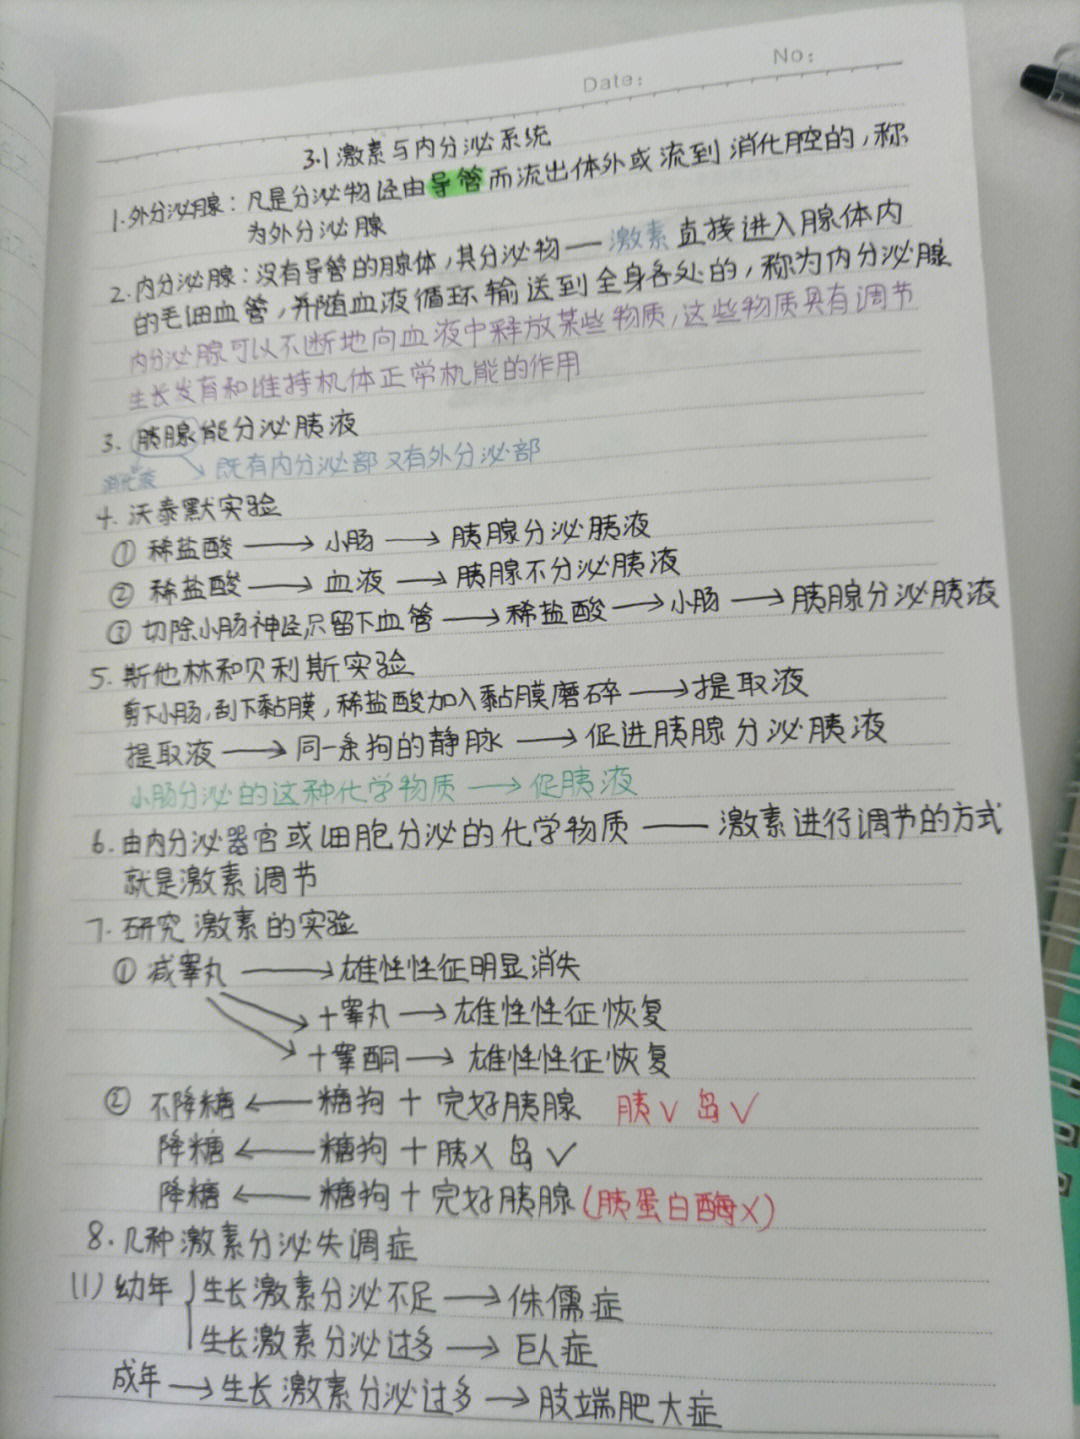 Date: No:
3.1 激素与内分泌系统
1.外分泌腺:凡是分泌物经由导管而流出体外或流到消化腔的,称
为外分泌腺
2.内分泌腺:没有导管的腺体,其分泌物——激素直接进入腺体内
的毛细血管,并随血液循环输送到全身各处的,称为内分泌腺
内分泌腺可以不断地向血液中释放某些物质,这些物质具有调节
生长发育和维持机体正常机能的作用
3.胰腺能分泌胰液
消化液 ↘既有内分泌部又有外分泌部
4.沃泰默实验
①稀盐酸→小肠→胰腺分泌胰液
②稀盐酸→血液→胰腺不分泌胰液
③切除小肠神经,只留下血管→稀盐酸→小肠→胰腺分泌胰液
5.斯他林和贝利斯实验
剪下小肠,刮下黏膜,稀盐酸加入黏膜磨碎→提取液
提取液→同一条狗的静脉→促进胰腺分泌胰液
小肠分泌的这种化学物质→促胰液
6.由内分泌器官或细胞分泌的化学物质——激素进行调节的方式
就是激素调节
7.研究激素的实验
①减睾丸→雄性性征明显消失
+睾丸→雄性性征恢复
+睾酮→雄性性征恢复
②不降糖←糖狗+完好胰腺 胰√岛√
降糖←糖狗+胰×岛√
降糖←糖狗+完好胰腺(胰蛋白酶×)
8.几种激素分泌失调症
(1)幼年{生长激素分泌不足→侏儒症
生长激素分泌过多→巨人症
成年→生长激素分泌过多→肢端肥大症